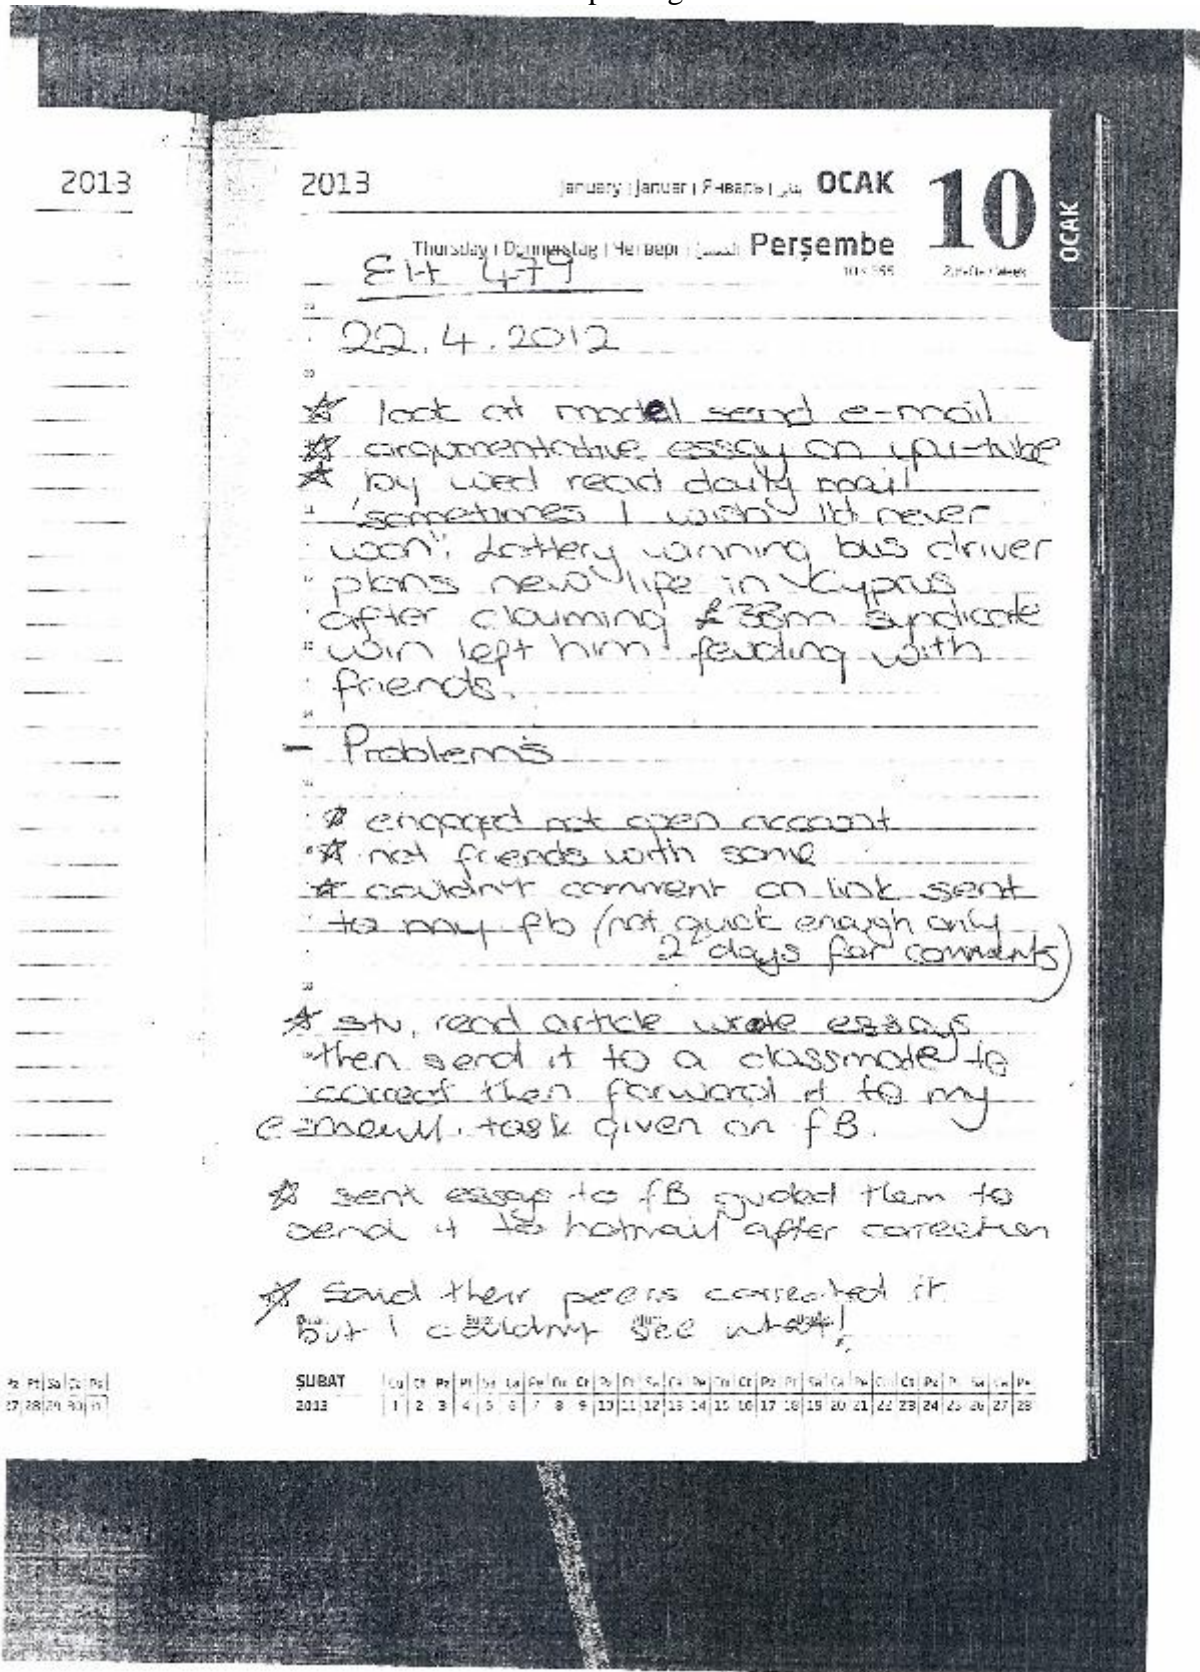 2013
2013 January | Januar | Январь | يناير OCAK 10
OCAK
Thursday | Donnerstag | Четверг | الخميس Perşembe
Elt 479
22.4.2012
☆ look at model send e-mail
☆ argumentative essay on you-tube
☆ by wed read daily mail
'sometimes I wish I'd never
won': Lottery winning bus driver
plans new life in Cyprus
after claiming £38m syndicate
win left him feuding with
friends.
- Problems
☆ engaged not open account
☆ not friends with some
☆ couldn't comment on link sent
to my fb (not quick enough only
2 days for comments)
☆ stu. read article wrote essays
then send it to a classmate to
correct then forward it to my
e-mail. task given on FB.
☆ sent essays to FB guided them to
send it to hotmail after correction
☆ said their peers corrected it
but I couldn't see what!
Pz Pt Sa Ça Pe
27 28 29 30 31
ŞUBAT
2013 1 2 3 4 5 6 7 8 9 10 11 12 13 14 15 16 17 18 19 20 21 22 23 24 25 26 27 28